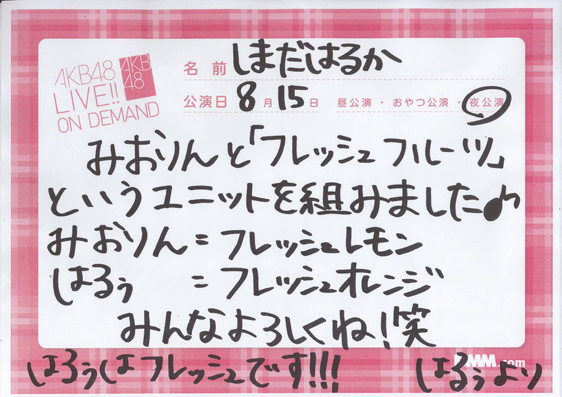 AKB48
LIVE!!
ON DEMAND
AKB
48
名前 しまだはるか
公演日 8月15日 昼公演・おやつ公演・夜公演
みおりんと「フレッシュフルーツ」
というユニットを組みました♪
みおりん=フレッシュレモン
はるぅ =フレッシュオレンジ
みんなよろしくね!笑
DMM.com
はるぅはフレッシュです!!! はるぅより